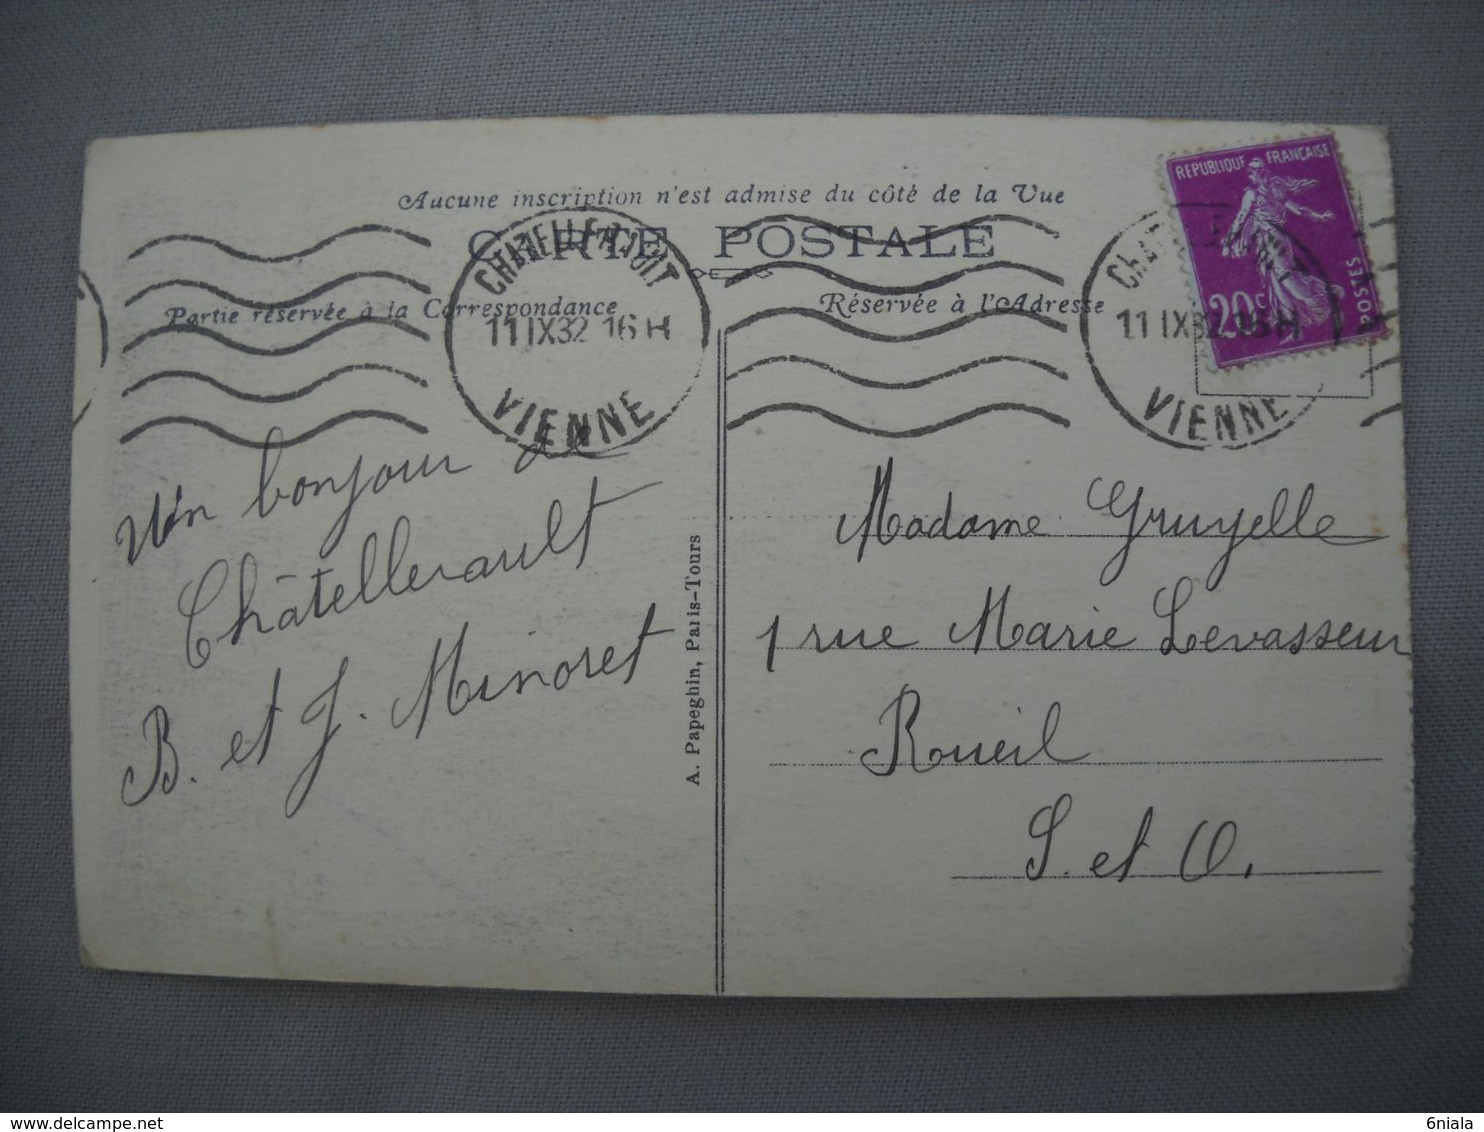 Aucune inscription n'est admise du côté de la Vue
CARTE POSTALE
Partie réservée à la Correspondance
Réservée à l'Adresse
REPUBLIQUE FRANÇAISE
20c
POSTES
11 IX 32 16 H
VIENNE
11 IX 32 16 H
VIENNE
Un bonjour de
Châtellerault
B. et J. Minoret
A. Papeghin, Paris-Tours
Madame Gruyelle
1 rue Marie Levasseur
Rueil
S. et O.
delcampe.net
6niala